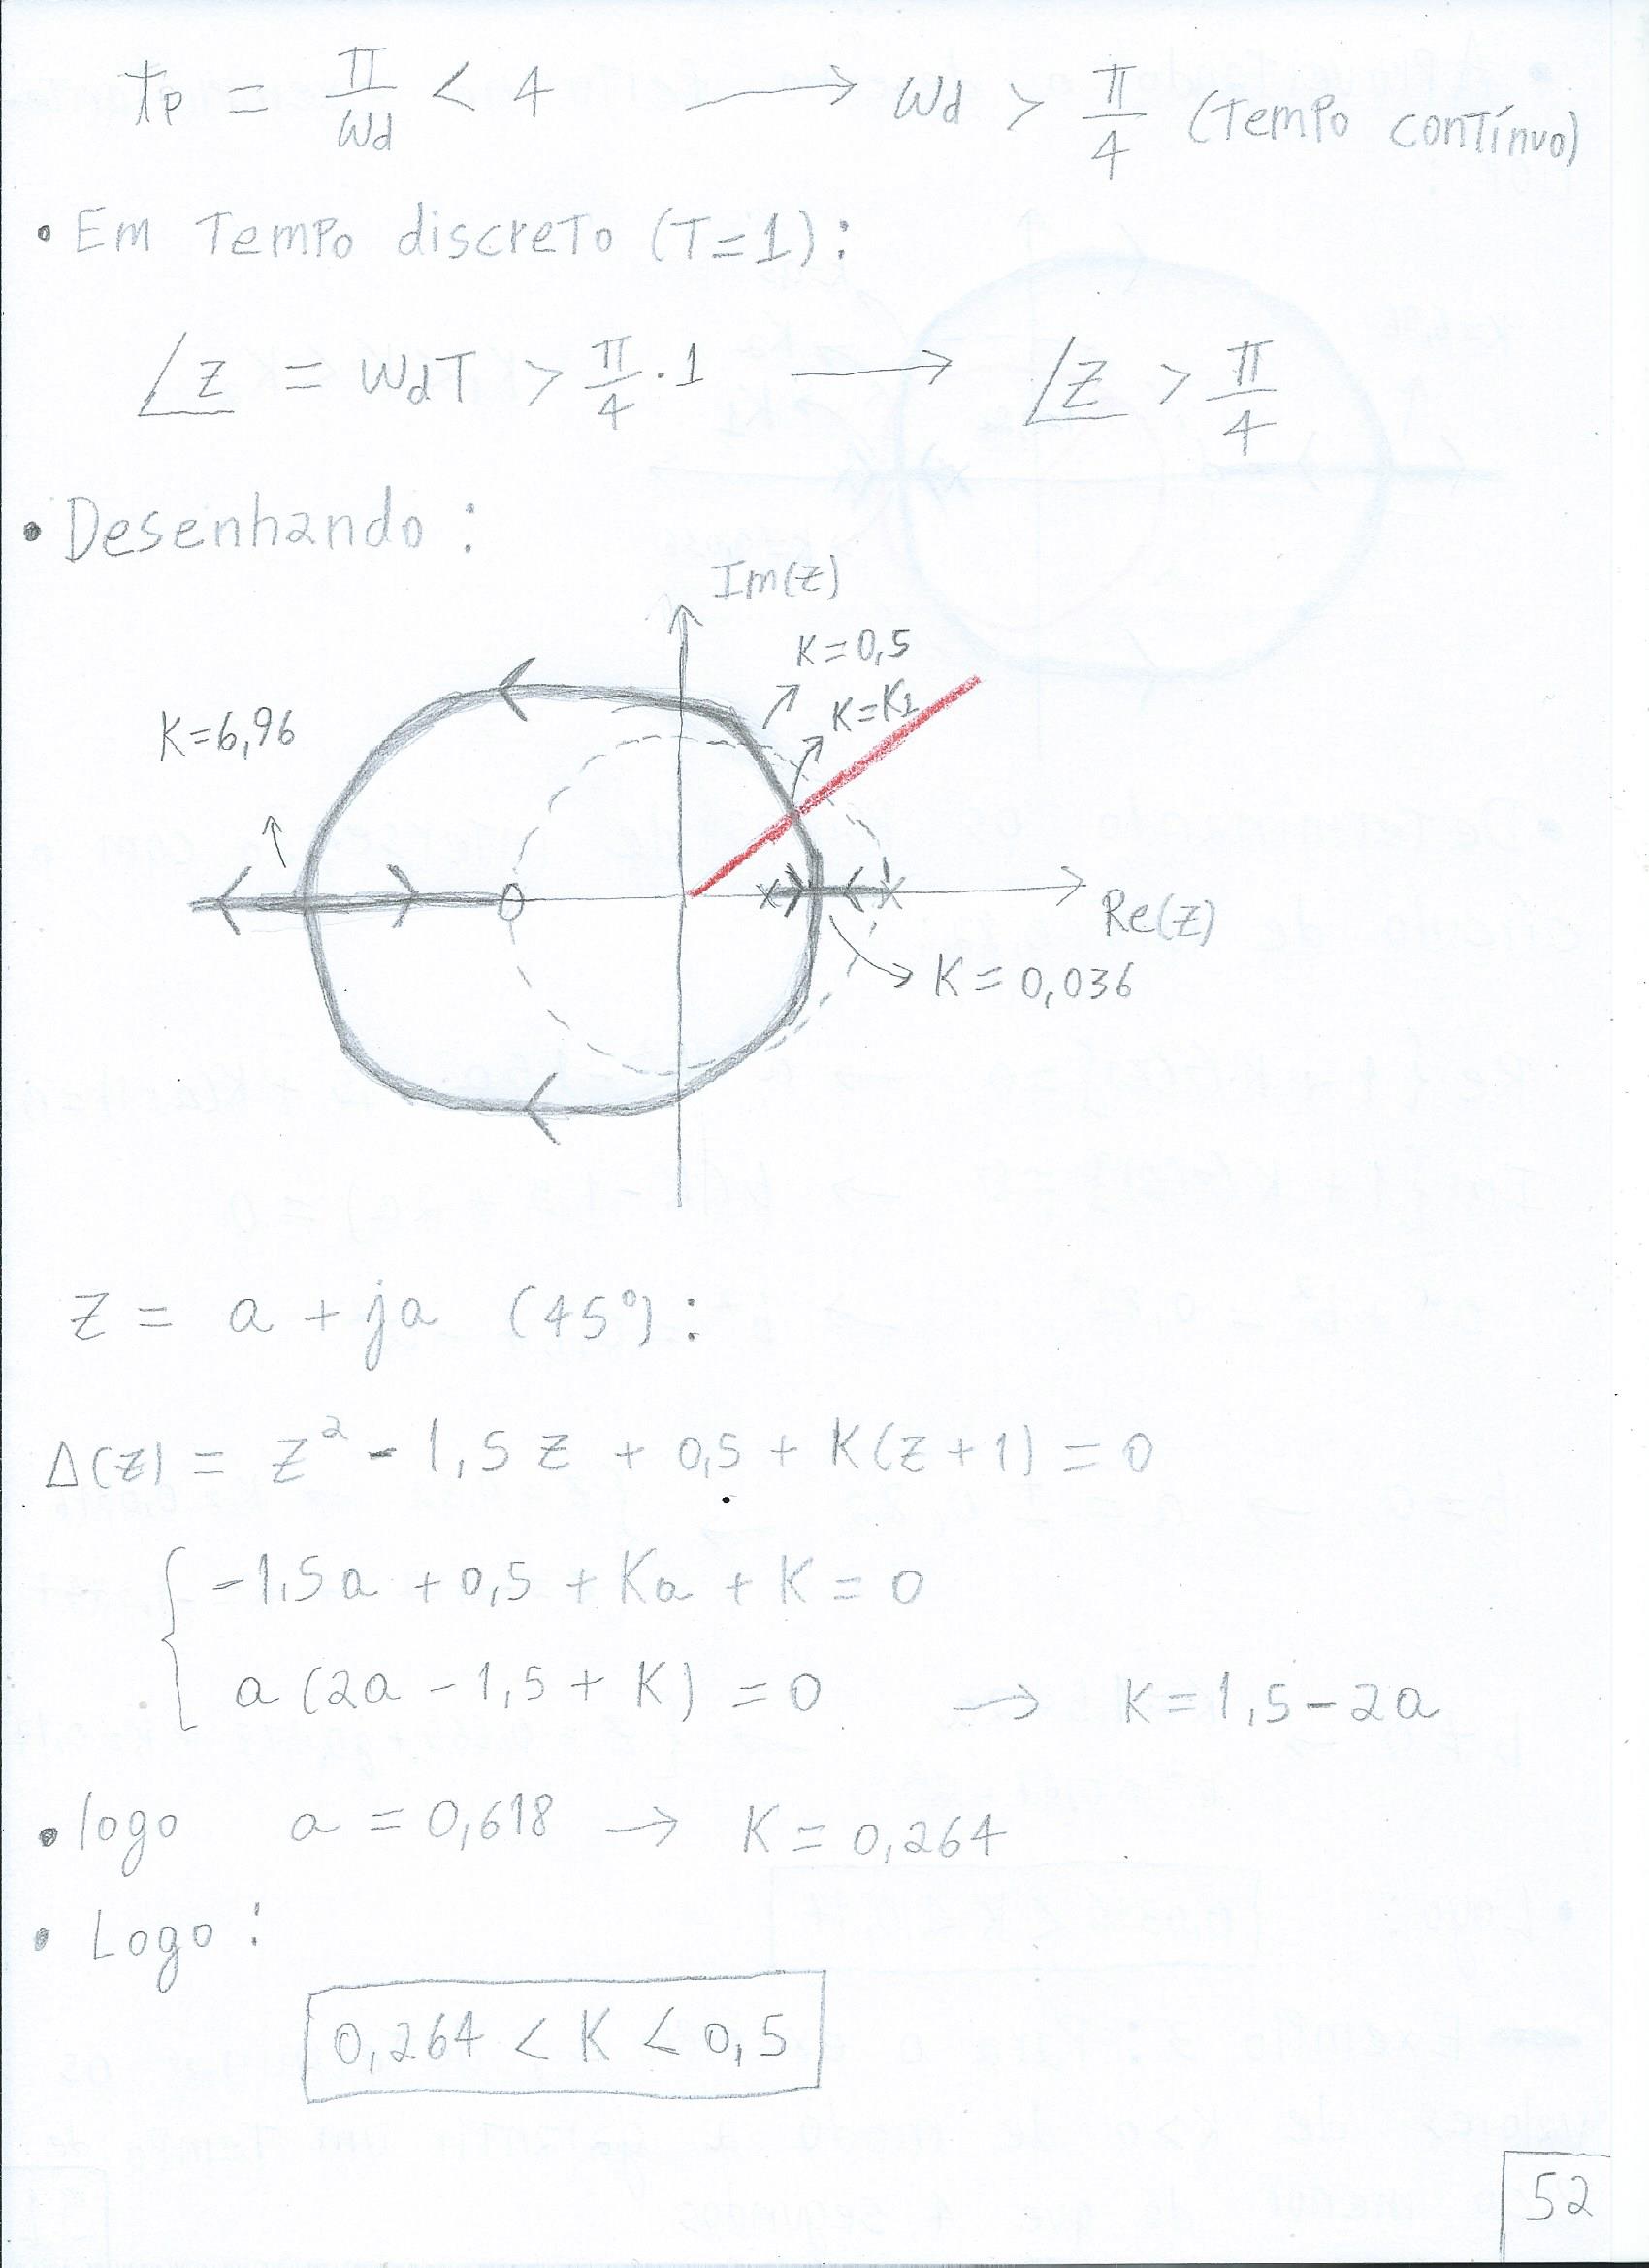 tp = π/Wd < 4 → Wd > π/4 (Tempo contínuo)
• Em Tempo discreto (T=1):
∠z = WdT > π/4 . 1 → ∠z > π/4
• Desenhando:
Im(z)
K=0,5
K=K1
K=6,96
Re(z)
K=0,036
z = a + ja (45°):
Δ(z) = z² - 1,5z + 0,5 + K(z+1) = 0
{ -1,5a + 0,5 + Ka + K = 0
a(2a - 1,5 + K) = 0 → K = 1,5 - 2a
• logo a = 0,618 → K = 0,264
• Logo:
0,264 < K < 0,5
52